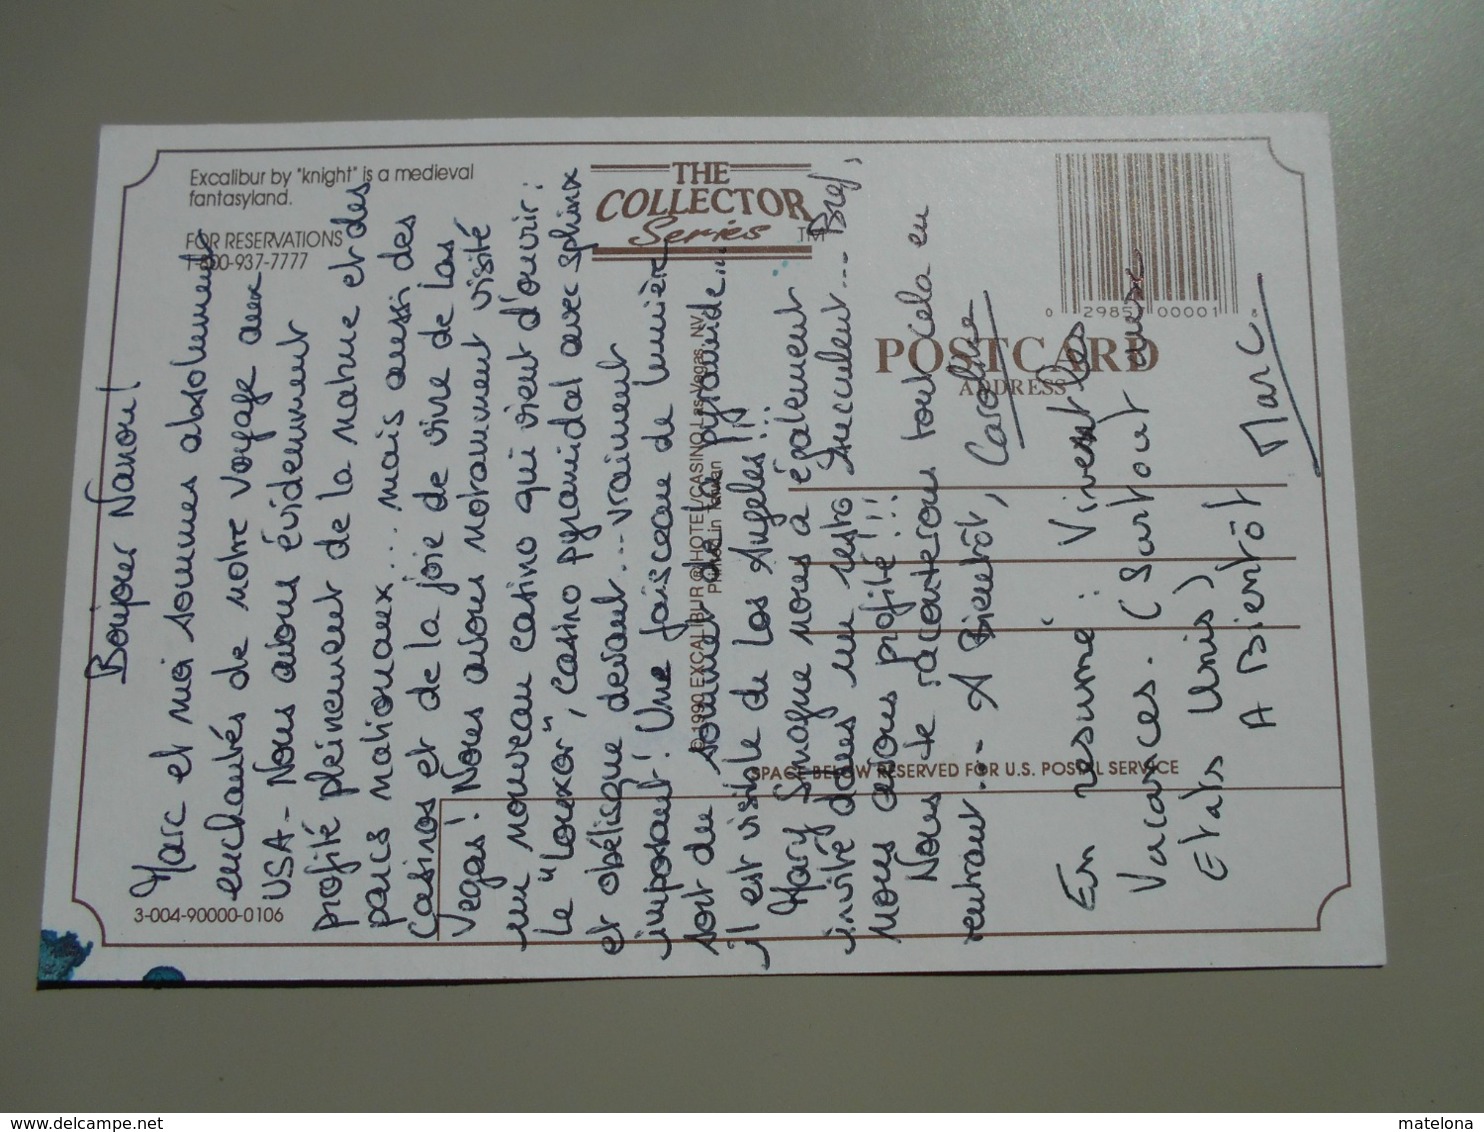 Excalibur by "knight" is a medieval
fantasyland.
FOR RESERVATIONS
1-800-937-7777
THE
COLLECTOR
Series
TM
0 29857 00001 8
POSTCARD
ADDRESS
© 1990 EXCALIBUR ® HOTEL/CASINO Las Vegas, NV
Printed in Taiwan
SPACE BELOW RESERVED FOR U.S. POSTAL SERVICE
3-004-90000-0106
Bonjour Nanou!
Marc et moi sommes absolument
enchantés de notre voyage aux
USA - Nous avons évidemment
profité pleinement de la nature et des
parcs nationaux... mais aussi des
Casinos et de la joie de vivre de Las
Vegas! Nous avons notamment visité
un nouveau casino qui vient d'ouvrir:
le "Louxor", casino pyramidal avec sphinx
et obélisque devant... vraiment
imposant! Une faisceau de lumière
sort du sommet de la pyramide...
il est visible de Los Angeles!!!
Mary nous a également
invité dans un resto succulent... Bref,
nous avons profité!!!
Nous te raconterons tout cela en
rentrant... A Bientôt, Caroline
En résumé: Vivent les
Vacances. (Surtout aux
Etats Unis)
A Bientôt Marc
matelona